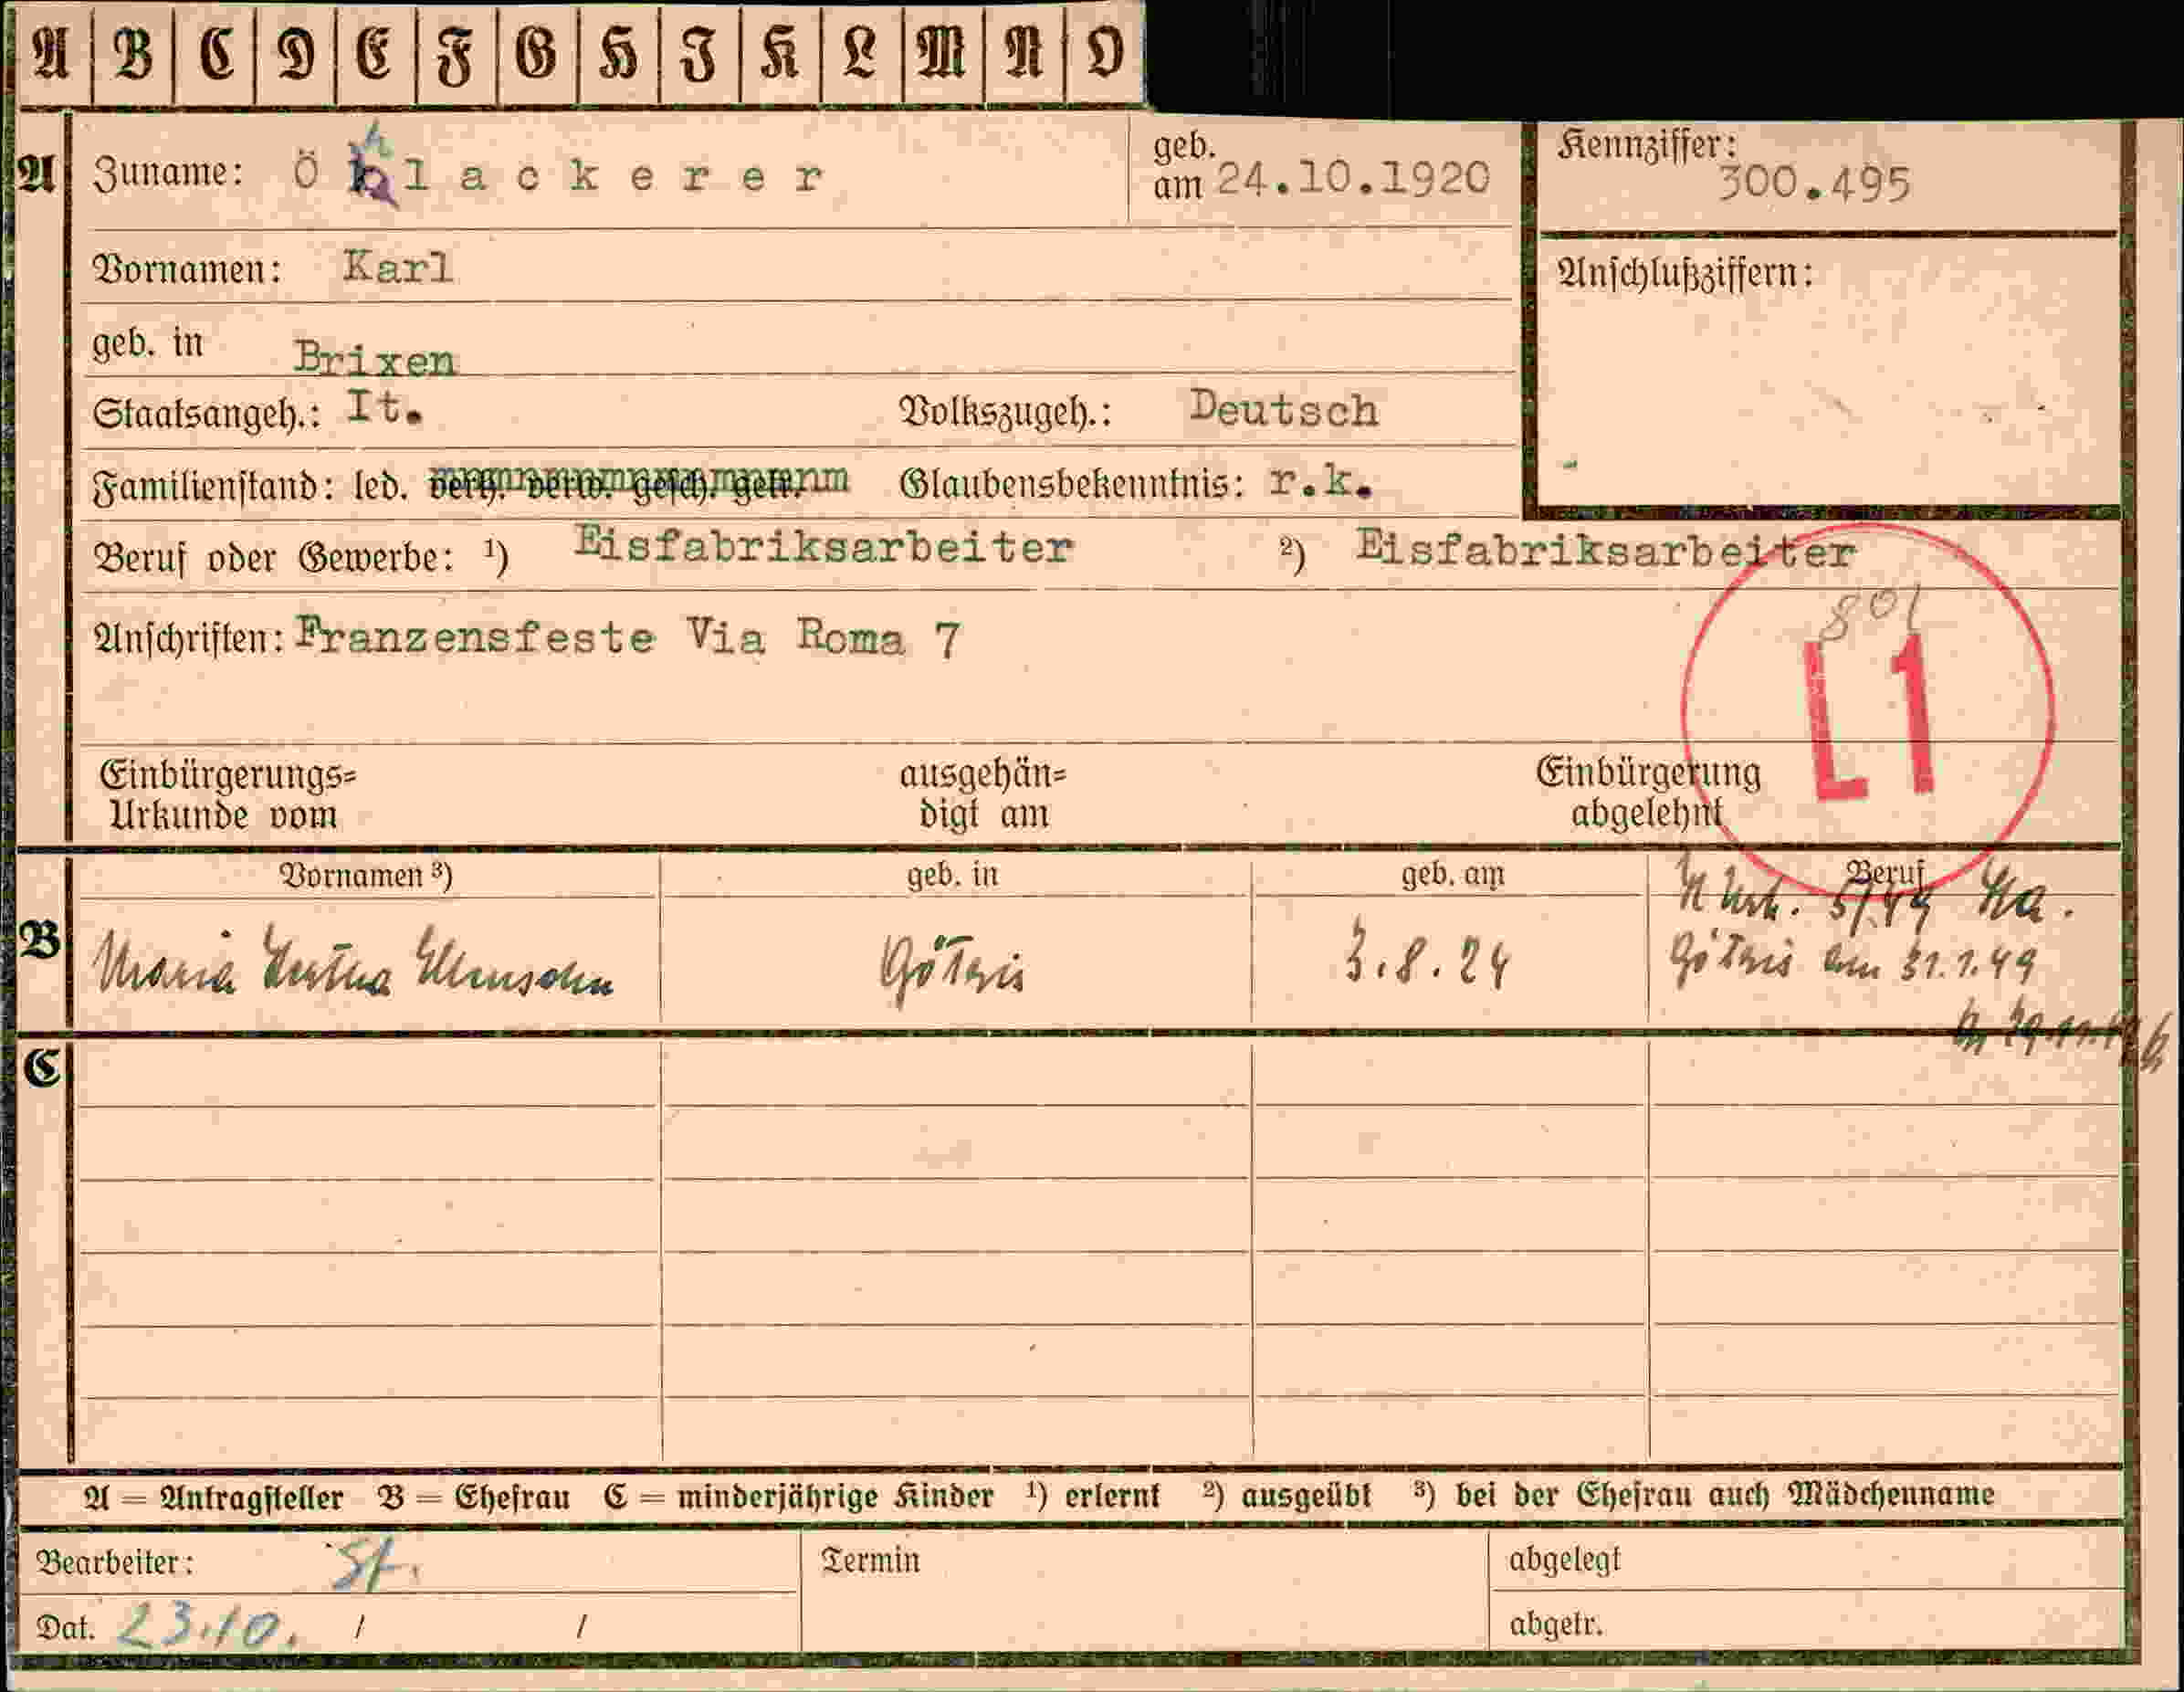 A B C D E F G H I K L M N O
A Zuname: Öhlackerer geb. am 24.10.1920 Kennziffer: 300.495
Vornamen: Karl Anschlußziffern:
geb. in Brixen
Staatsangeh.: It. Volkszugeh.: Deutsch
Familienstand: led. verh. verw. gesch. getr. Glaubensbekenntnis: r.k.
Beruf oder Gewerbe: ¹) Eisfabriksarbeiter ²) Eisfabriksarbeiter
801
Anschriften: Franzensfeste Via Roma 7
L1
Einbürgerungs= ausgehän= Einbürgerung
Urkunde vom digt am abgelehnt
Vornamen ³) geb. in geb. am Beruf
B Maria Götzis 3.8.24
Götzis am 31.1.49
C
A = Antragsteller B = Ehefrau C = minderjährige Kinder ¹) erlernt ²) ausgeübt ³) bei der Ehefrau auch Mädchenname
Bearbeiter: St. Termin abgelegt
Dat. 23.10. / / abgetr.